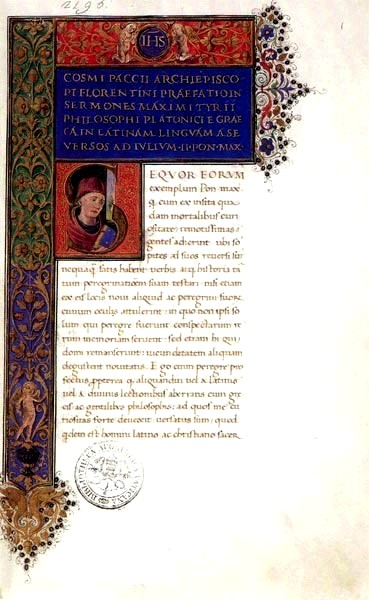 2196.
IHS
COSMI PACCII ARCHIEPISCO-
PI FLORENTINI PRAEFATIO IN
SERMONES MAXIMI TYRII
PHILOSOPHI PLATONICI E GRAE
CA IN LATINAM LINGVAM A SE
VERSOS AD IVLIVM·II·PON·MAX·
SEQVOR EORVM
exemplum Pon·maxe
q; cum ex insita qua
dam mortalibus curi
ositate: remotissimas
gentes adierint ubi so
pites ad suos reversi sunt
nequaq̃ satis habent verbis
tum peregrinationem suam testari nisi etiam
ex eis locis novi aliquid ac peregrini suorum
civium oculis attulerint: in quo non ipsi so
lum qui peregre fuerint conspectarum re
rum memoriam servent: sed etiam hi qui
domi remanserint: iucunditatem aliquam
degustent novitatis. Ego cum peregre pro
fectus aliquandiu vel a latinis
vel a divinis lectionibus aberrans cum grę
cis ac gentilibus philosophis: ad quos me cu
riositas forte devexit versatus sim: quod
q̃dem est homini latino ac christiano sacer